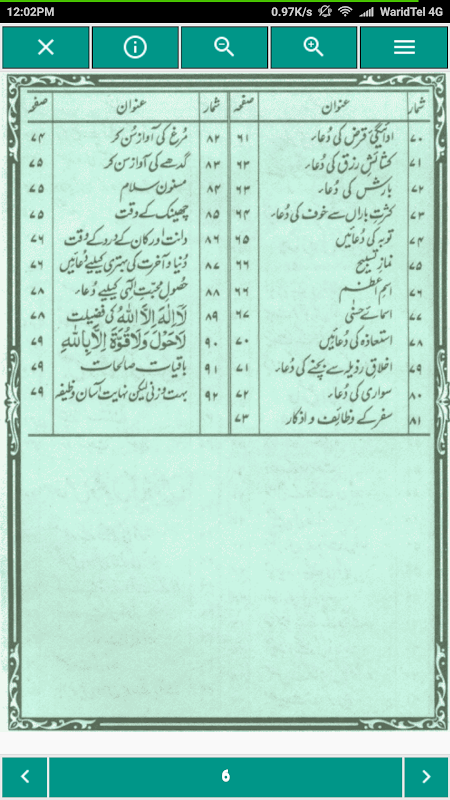 12:02PM 0.97K/s WaridTel 4G
شمار عنوان صفحہ شمار عنوان صفحہ
۷۰ ادائیگیٔ قرض کی دُعاء ۶۱
۷۱ کشائشِ رزق کی دُعاء ۶۳
۷۲ بارش کی دُعاء ۶۳
۷۳ کثرتِ باراں سے خوف کی دُعاء ۶۴
۷۴ توبہ کی دُعائیں ۶۵
۷۵ نمازِ تسبیح ۶۶
۷۶ اسمِ اعظم ۶۶
۷۷ اسمائے حسنٰی ۶۷
۷۸ استعاذہ کی دُعائیں ۷۰
۷۹ اخلاقِ رذیلہ سے بچنے کی دُعاء ۷۱
۸۰ سواری کی دُعاء ۷۲
۸۱ سفر کے وظائف و اذکار ۷۳
۸۲ مُرغ کی آواز سُن کر ۷۴
۸۳ گدھے کی آواز سن کر ۷۵
۸۴ مسنون سلام ۷۵
۸۵ چھینک کے وقت ۷۵
۸۶ دانت اور کان کے درد کے وقت ۷۶
۸۷ دُنیا و آخرت کی بہتری کیلئے دُعائیں ۷۶
۸۸ حصولِ محبتِ الٰہی کیلئے دُعاء ۷۸
۸۹ لَآ اِلٰهَ اِلَّا اللهُ کی فضیلت ۷۸
۹۰ لَاحَوْلَ وَلَا قُوَّةَ اِلَّا بِاللهِ ۷۹
۹۱ باقیات صالحات ۷۹
۹۲ بہت وزنی لیکن نہایت آسان وظیفہ ۷۹
6